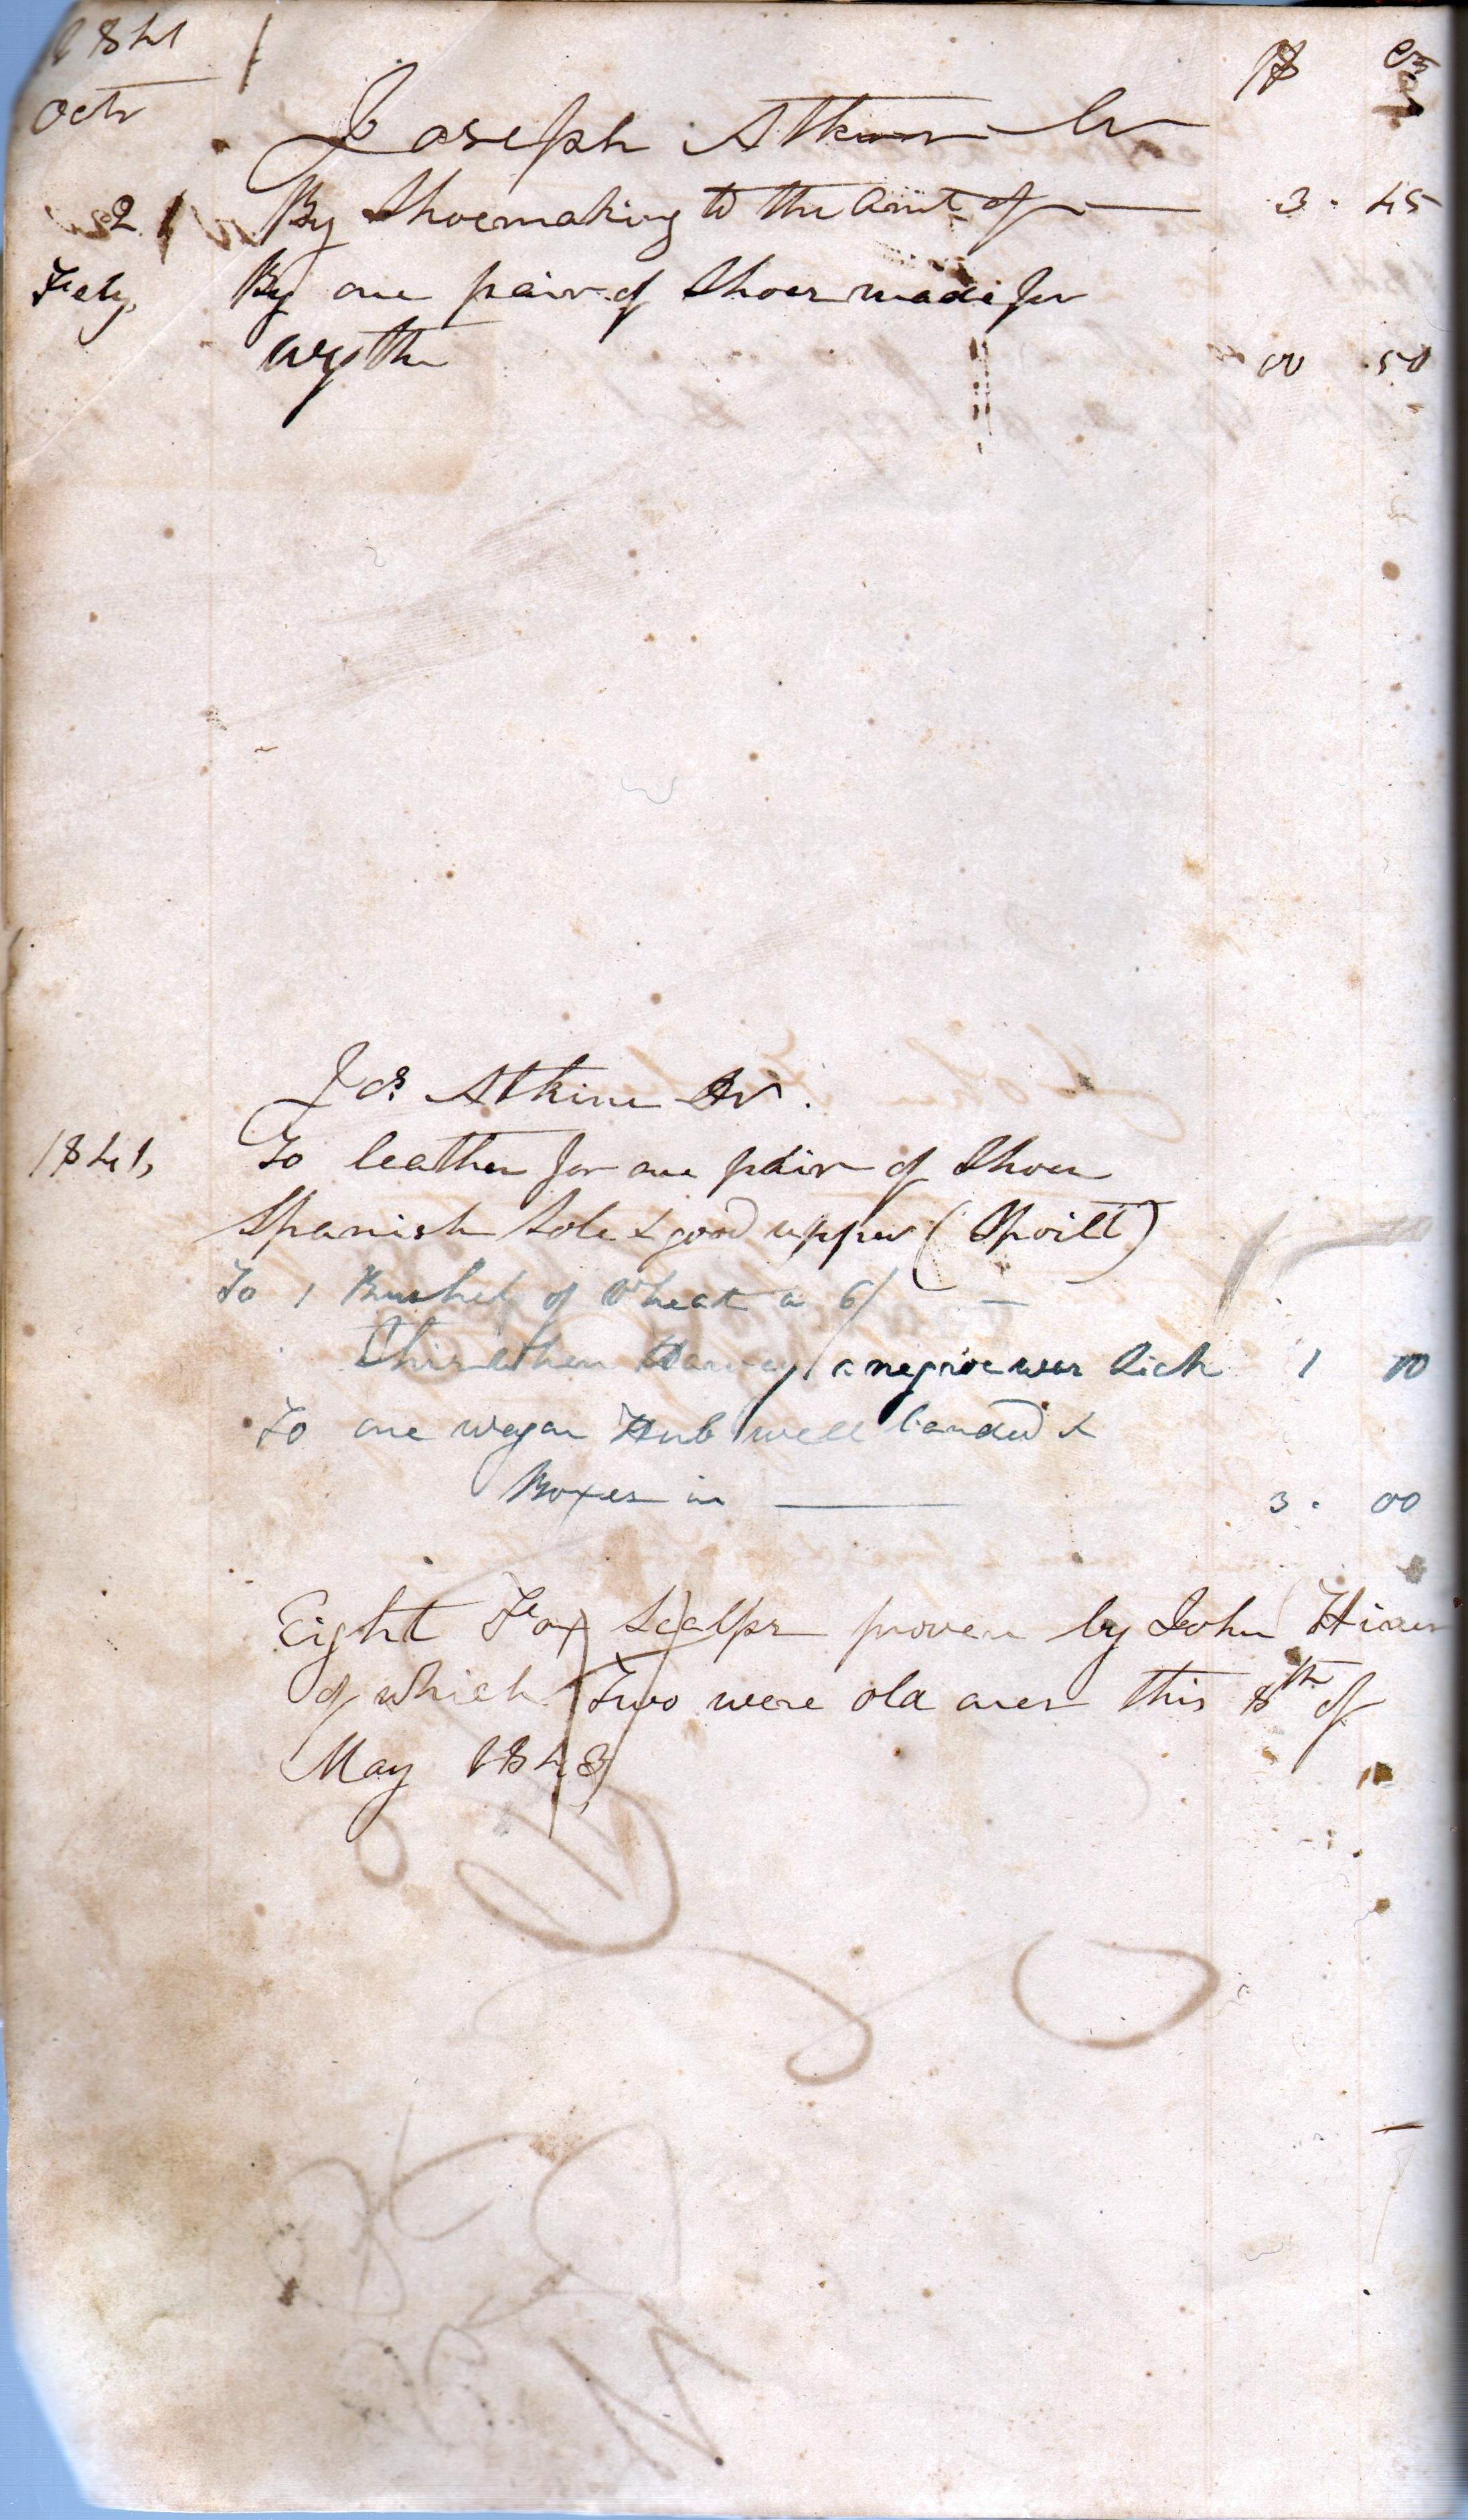 1841
Octr
$ cts
Joseph Atkins Cr
2 By Shoemaking to the amt of — 3 . 45
Feby, By one pair of Shoes made for
wythe 00 .50
Jos Atkins Dr.
1841, To leather for one pair of Shoes
Spanish Sole & good upper (Spoilt)
To 1 Bushel of Wheat a 6/ —
this when Harvey a negroe was Sick 1 00
To one wagon Hub well banded &
Boxes in — 3 . 00
Eight Fox Scalps proven by John
of which Two were old ones this 8th of
May 1843